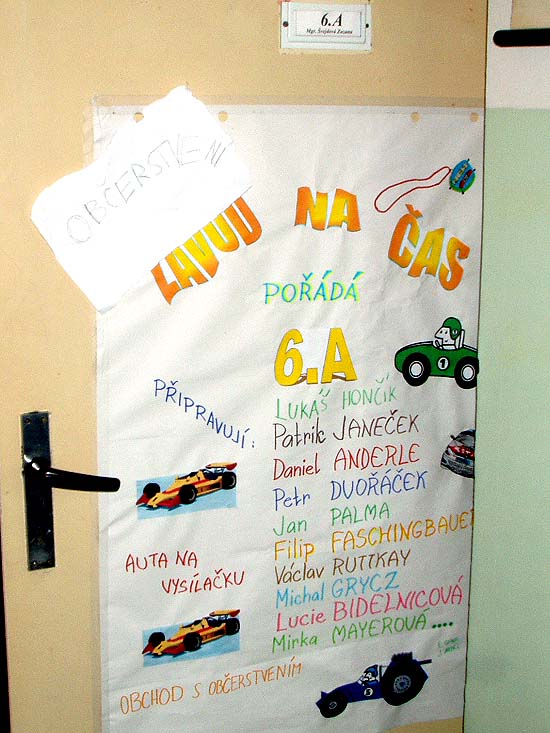 6.A
Mgr. Švejdová Zuzana
OBČERSTVENÍ
ZÁVOD NA ČAS
POŘÁDÁ
6.A
PŘIPRAVUJÍ:
LUKÁŠ HONČÍK
Patrik JANEČEK
Daniel ANDERLE
Petr DVOŘÁČEK
Jan PALMA
Filip FASCHINGBAUER
Václav RUTTKAY
Michal GRYCZ
Lucie BIDELNICOVÁ
Mirka MAYEROVÁ....
AUTA NA
VYSÍLAČKU
OBCHOD S OBČERSTVENÍM
1